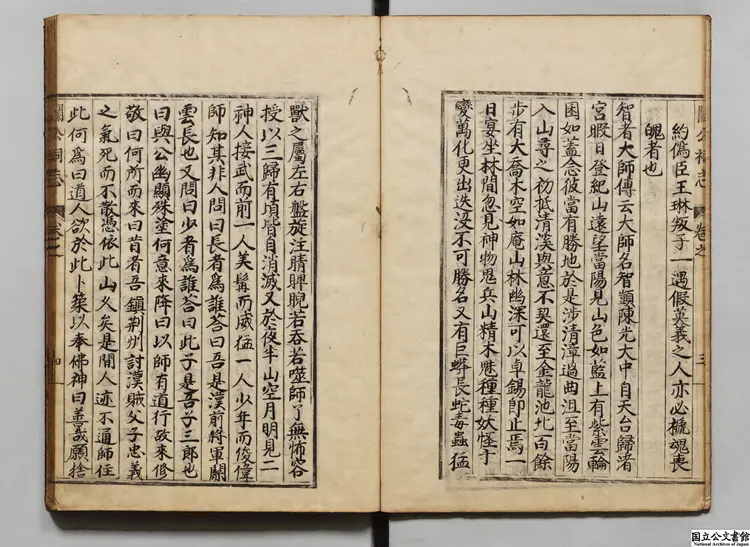 約偽臣王琳叛于一遇假英義之人亦必褫魂喪
魄者也
智者大師傳云大師名智顗陳光大中自天台歸渚
宮暇日登紀山遠望當陽見山色如藍上有紫雲輪
囷如蓋念彼當有勝地於是涉清漳過曲沮至當陽
入山尋之初抵清溪與意不契還至金龍池北百餘
步有大喬木空如庵山林幽深可以卓錫即止焉一
日宴坐林間忽見神物鬼兵山精木魅種種妖怪千
變萬化更出迭沒不可勝名又有巨蟒長蛇毒蟲猛
獸之屬左右盤旋注睛睥睨若吞若噬師了無怖容
授以三歸有頃皆自消滅又於夜半山空月明見二
神人接武而前一人美髯而威猛一人少年而俊偉
師知其非人問曰長者為誰答曰吾是漢前將軍關
雲長也又問曰少者為誰答曰此子是吾子三郎也
曰與公幽顯殊塗何意來降曰以師有道行故來修
敬曰何所而來曰昔者吾鎮荆州討漢賊父子忠義
之氣死而不散憑依此山久矣是間人迹不通師住
此何為曰道人欲於此卜築以奉佛神曰善哉願捨
關公祠志
卷之二
国立公文書館
National Archives of Japan